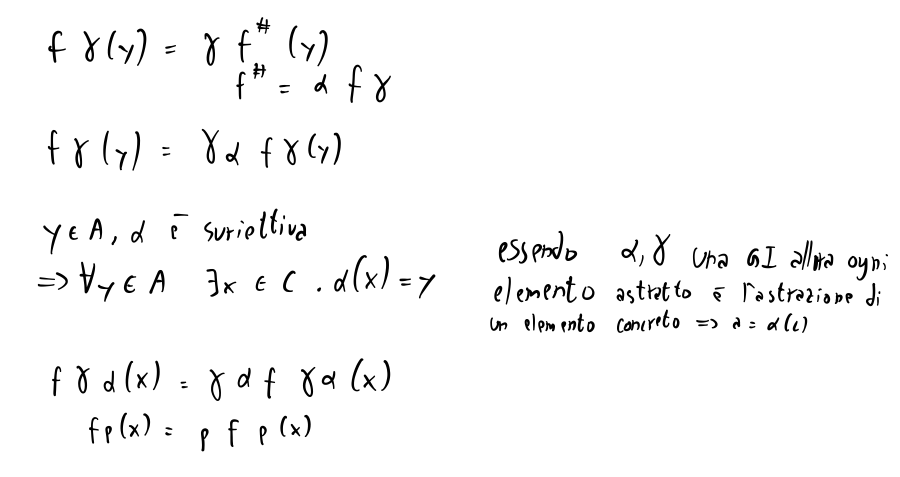 f γ(y) = γ f^# (y)
f^# = α f γ
f γ (y) = γα f γ(y)
y ∈ A, α è suriettiva
=> ∀y ∈ A ∃x ∈ C . α(x) = y
essendo α, γ una GI allora ogni
elemento astratto è l'astrazione di
un elemento concreto => a = α(c)
f γ α(x) = γ α f γα (x)
fρ(x) = ρ f ρ(x)